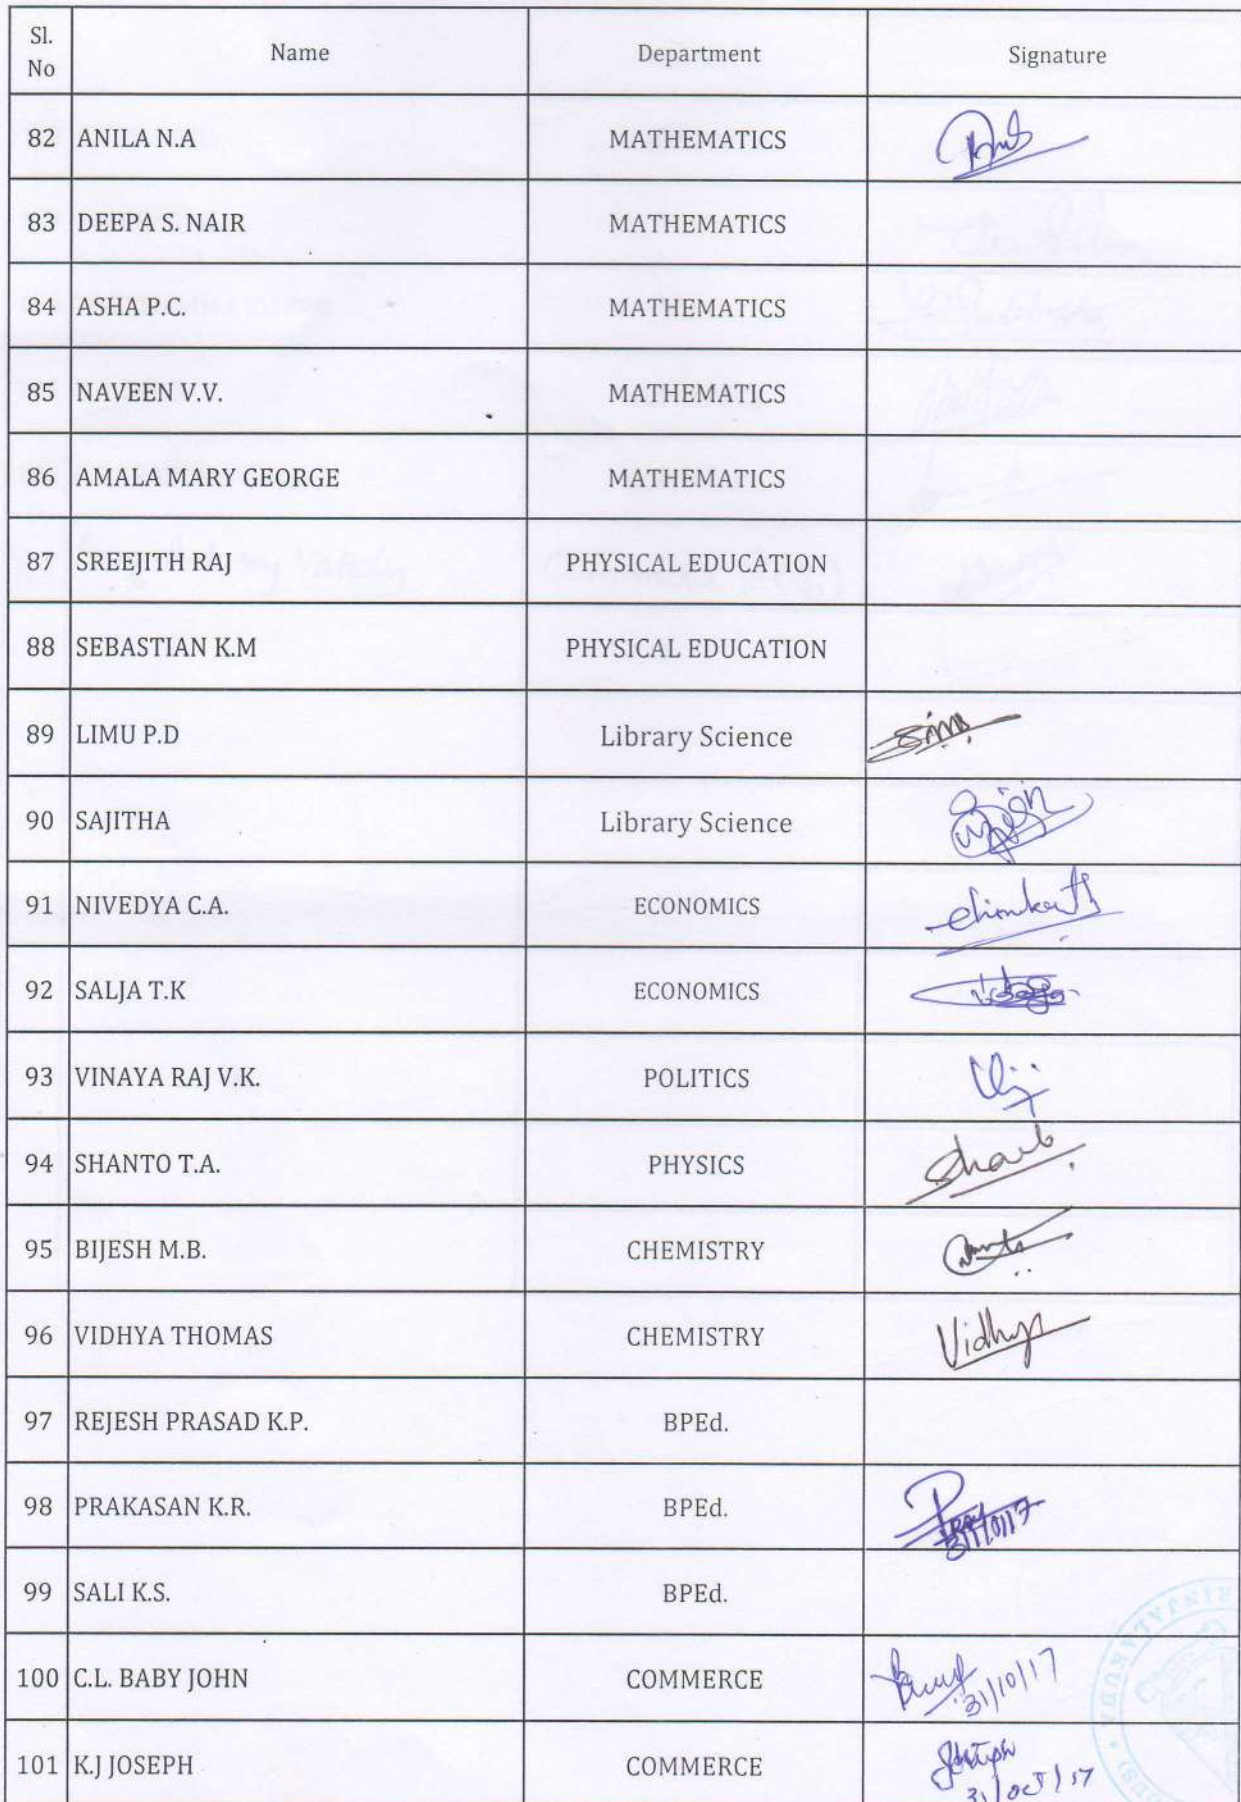 Sl. No Name Department Signature
82 ANILA N.A MATHEMATICS
83 DEEPA S. NAIR MATHEMATICS
84 ASHA P.C. MATHEMATICS
85 NAVEEN V.V. MATHEMATICS
86 AMALA MARY GEORGE MATHEMATICS
87 SREEJITH RAJ PHYSICAL EDUCATION
88 SEBASTIAN K.M PHYSICAL EDUCATION
89 LIMU P.D Library Science
90 SAJITHA Library Science
91 NIVEDYA C.A. ECONOMICS
92 SALJA T.K ECONOMICS
93 VINAYA RAJ V.K. POLITICS
94 SHANTO T.A. PHYSICS
95 BIJESH M.B. CHEMISTRY
96 VIDHYA THOMAS CHEMISTRY Vidhya
97 REJESH PRASAD K.P. BPEd.
98 PRAKASAN K.R. BPEd. 31/10/17
99 SALI K.S. BPEd.
100 C.L. BABY JOHN COMMERCE 31/10/17
101 K.J JOSEPH COMMERCE 31/oct/17